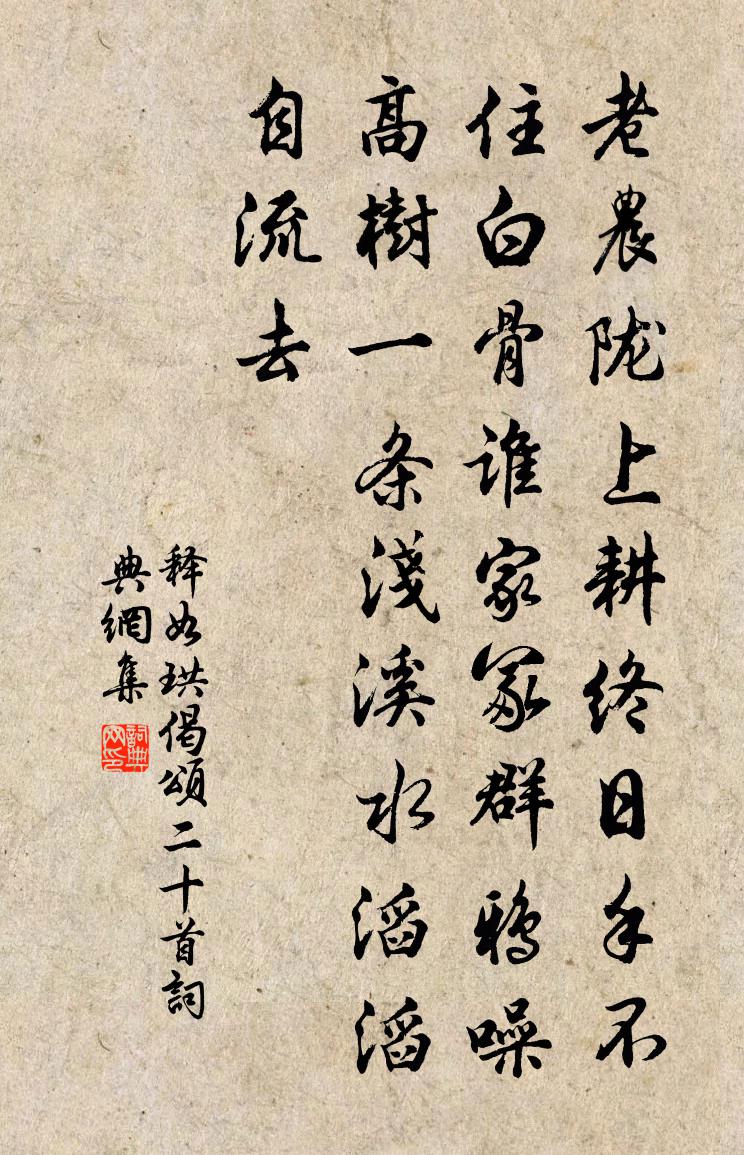 老農陇上耕終日手不
住白骨谁家冢群鴉噪
高樹一条淺溪水滔滔
自流去
释如珙偈頌二十首詞
典網集
詞典网印